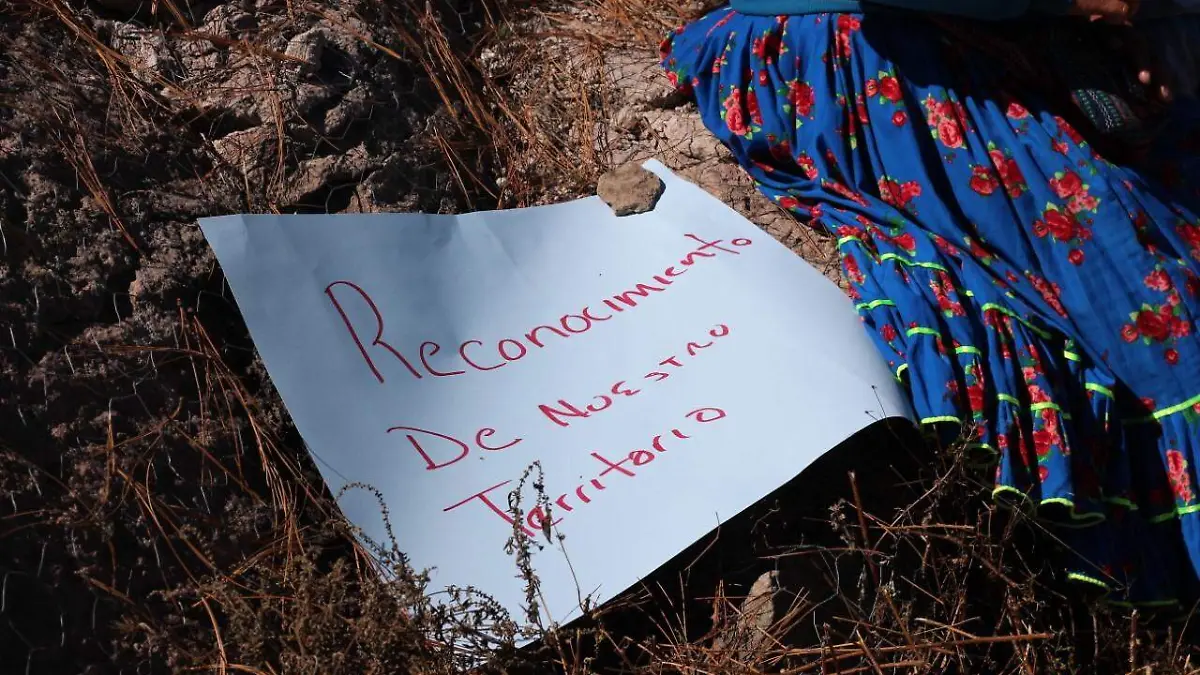 Reconocimiento
De Nuestro
Territorio